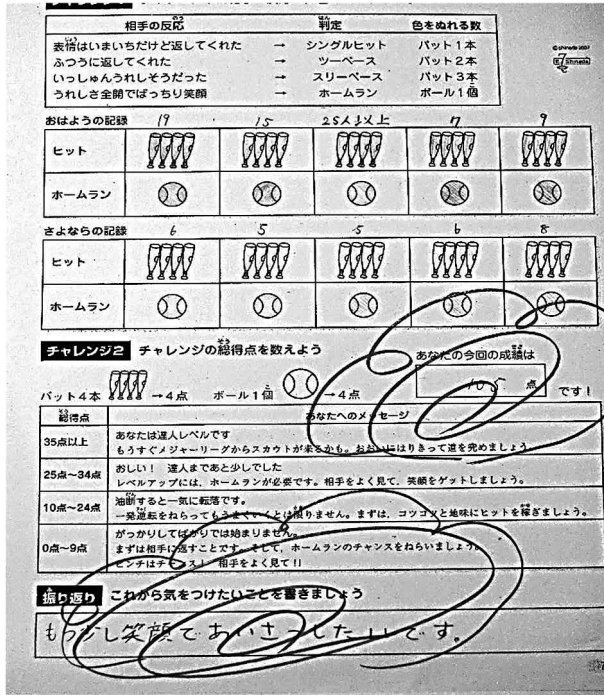 相手の反応 判定 色をぬれる数
表情はいまいちだけど返してくれた → シングルヒット バット1本
ふつうに返してくれた → ツーベース バット2本
いっしゅんうれしそうだった → スリーベース バット3本
うれしさ全開でばっちり笑顔 → ホームラン ボール1個
おはようの記録 19 15 25人以上 7 9
ヒット
ホームラン
さよならの記録 6 5 5 6 8
ヒット
ホームラン
チャレンジ2 チャレンジの総得点を数えよう
あなたの今回の成績は
105 点 です!
バット4本 →4点 ボール1個 →4点
総得点 あなたへのメッセージ
35点以上 あなたは達人レベルです
もうすぐメジャーリーグからスカウトが来るかも。おおいにはりきって道を究めましょう
25点〜34点 おしい! 達人まであと少しでした
レベルアップには、ホームランが必要です。相手をよく見て、笑顔をゲットしましょう。
10点〜24点 油断すると一気に転落です。
一発逆転をねらってもうまくいくとは限りません。まずは、コツコツと地味にヒットを稼ぎましょう。
0点〜9点 がっかりしてばかりでは始まりません。
まずは相手に返すことです。そして、ホームランのチャンスをねらいましょう。
ピンチはチャンス! 相手をよく見て!!
振り返り これから気をつけたいことを書きましょう
もう少し笑顔であいさつしたいです。